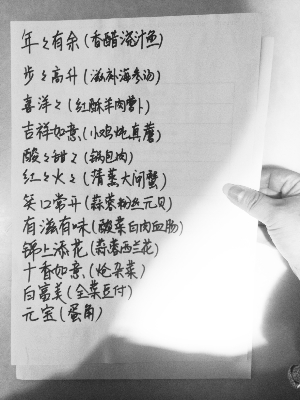 年々有余(香醋浇汁鱼)
步々高升(滋补海参汤)
喜洋々(红酥羊肉萝卜)
吉祥如意(小鸡炖真蘑)
酸々甜々(锅包肉)
红々火々(清蒸大闸蟹)
笑口常开(蒜蓉粉丝元贝)
有滋有味(酸菜白肉血肠)
锦上添花(蒜蓉西兰花)
十香如意(炝杂菜)
白富美(全菜豆付)
元宝(蛋角)